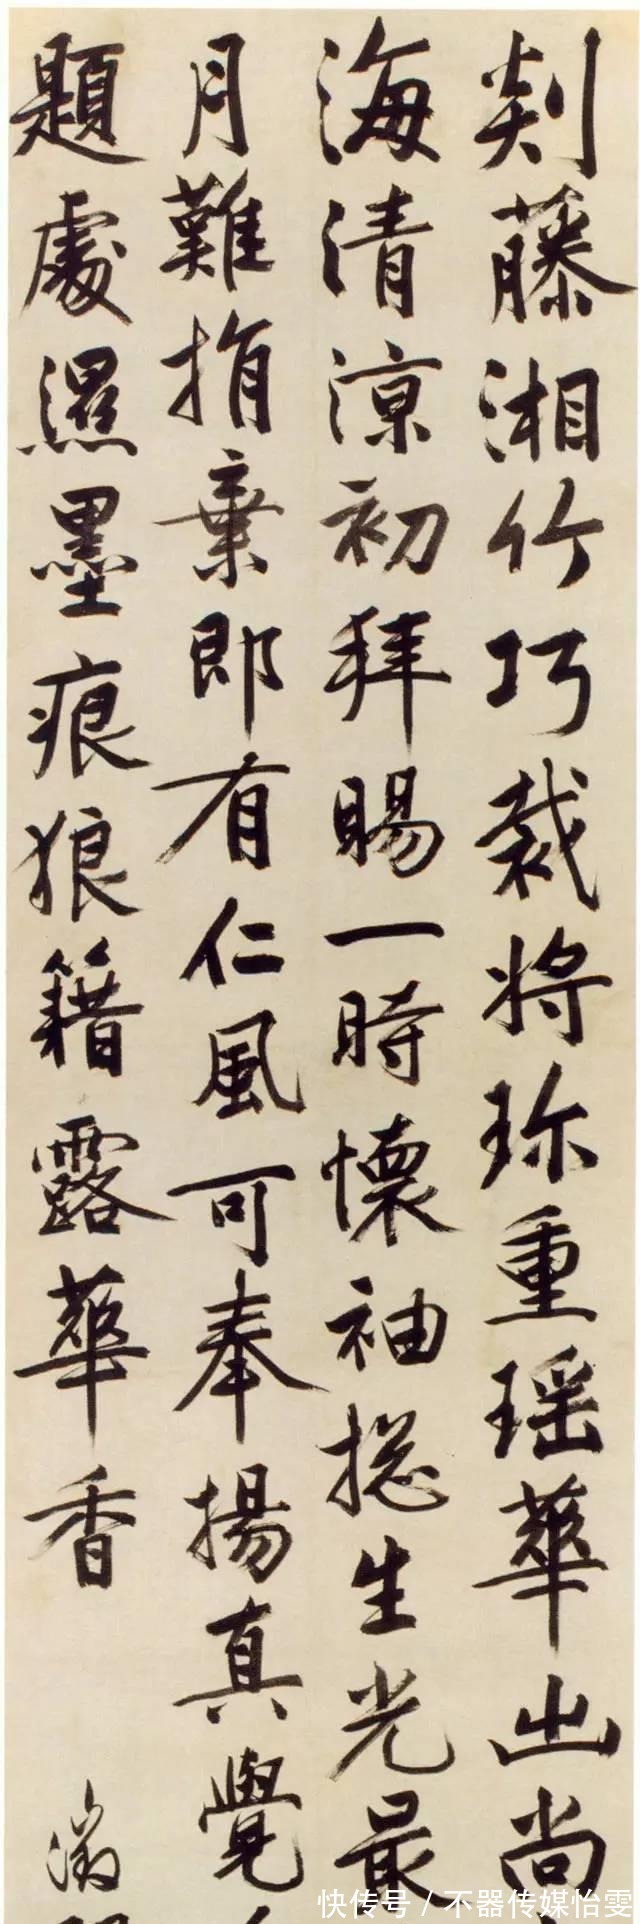 剡藤湘竹巧裁将珎重瑶華出尚
海清涼初拜賜一時懷袖揔生光最
月難捐棄即有仁風可奉揚真覺
題處濕墨痕狼籍露華香
瀓
快传号/不器传媒怡雯